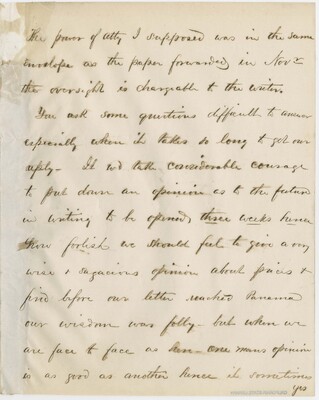 The power of atty I supposed was in the same
envelope as the paper forwarded in Novr
the oversight is chargable to the writer.
You ask some questions difficult to answer
especially when it takes so long to get our
reply - It wd take considerable courage
to put down an opinion as to the future
in writing to be opened three weeks hence
How foolish we should feel to give a very
wise & sagacious opinion about prices &
find before our letter reached Panama
our wisdom was folly - but when we
are face to face as here one mans opinion
is as good as another hence it sometimes
yrs